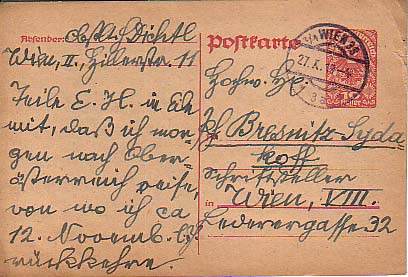 Absender: Obstlt Dichtl
Wien, II., Zillerstr. 11
Teile E. H. in Eile
mit, daß ich mor-
gen nach Ober-
österreich reise,
von wo ich ca
12. Novemb.
rückkehre.
Postkarte
WIEN
27. X.
Hochw. H.
Bresnitz Syda-
koff
Schriftsteller
in Wien, VIII.
Lederergasse 32